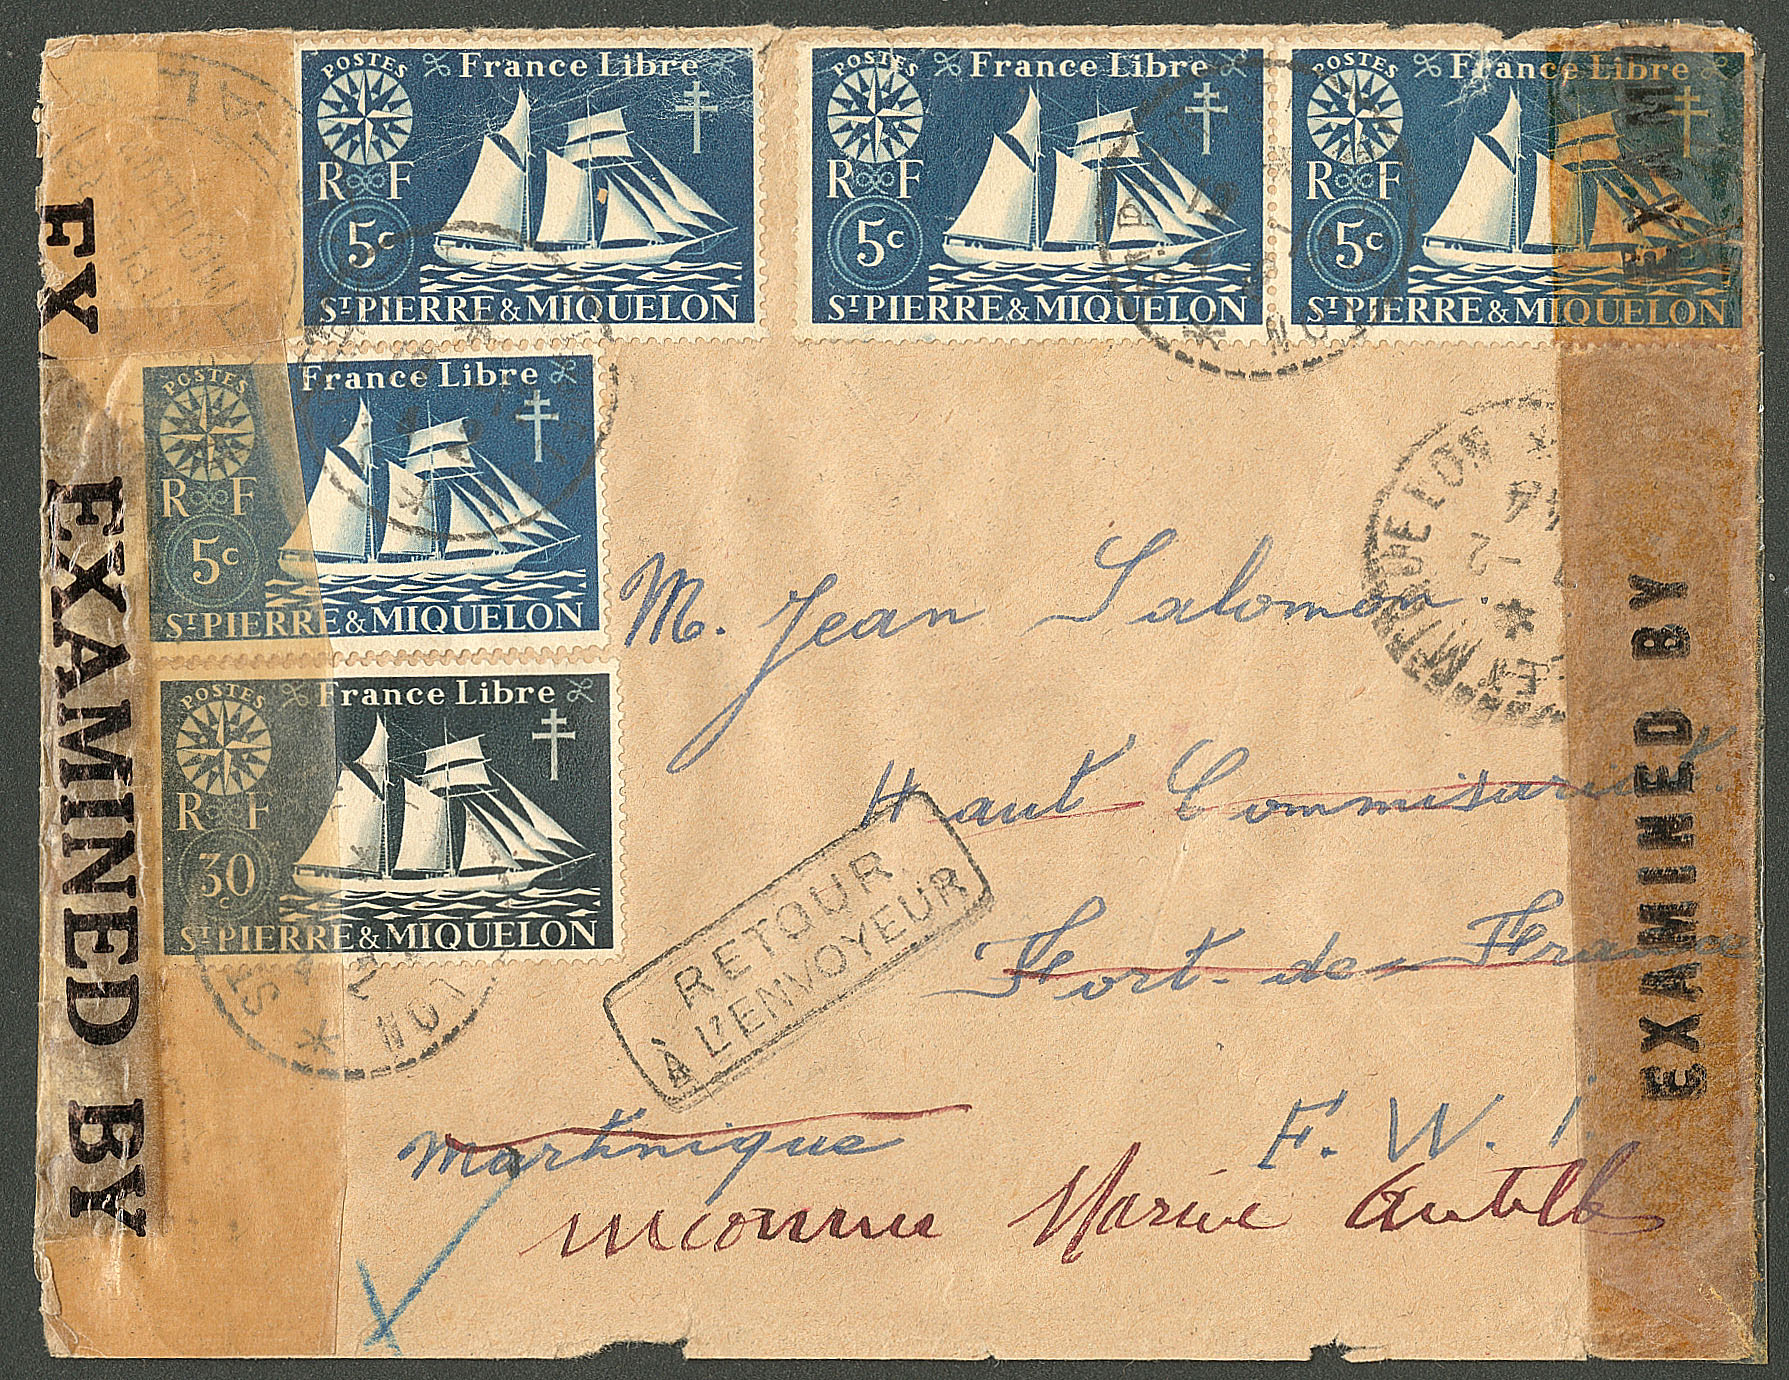 POSTES France Libre
RF
5c
ST PIERRE & MIQUELON
POSTES France Libre
RF
5c
ST PIERRE & MIQUELON
POSTES France Libre
RF
5c
ST PIERRE & MIQUELON
POSTES France Libre
RF
5c
ST PIERRE & MIQUELON
POSTES France Libre
RF
30c
ST PIERRE & MIQUELON
EX
EXAMINED BY
EXAMINED BY
M. Jean Salomon.
Haut Commisariat.
Fort-de-France
Martinique F. W. I.
RETOUR
À L'ENVOYEUR
inconnu Marine